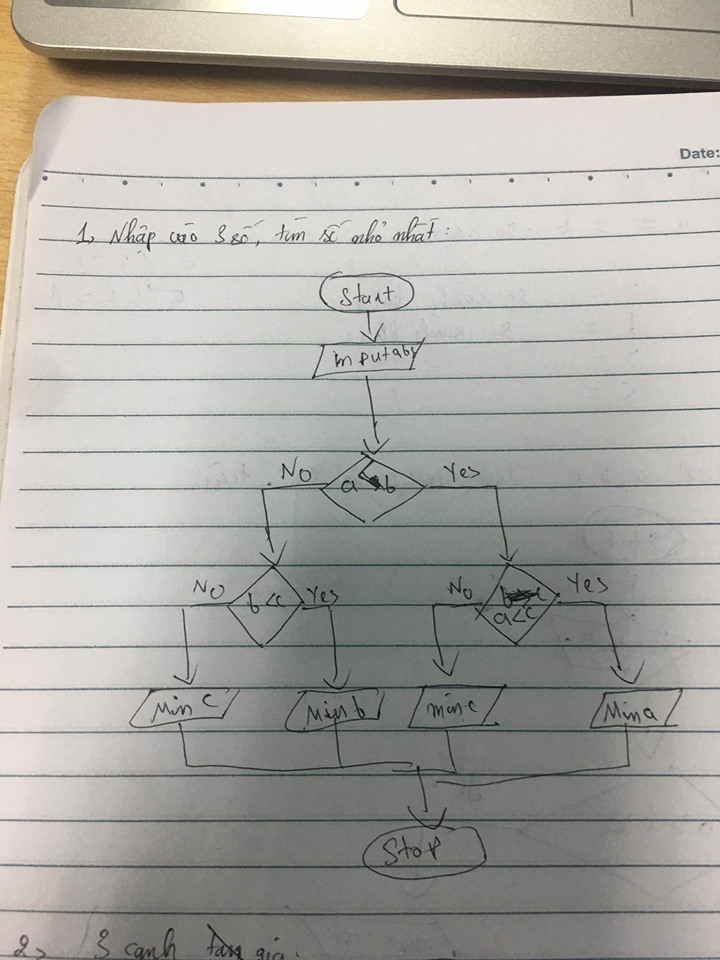 Date:
1, Nhập vào 3 số, tìm số nhỏ nhất:
Start
input
a < b
No
Yes
b < c
No
Yes
a < c
No
Yes
Min c
Min b
min c
Min a
Stop
2, 3 cạnh